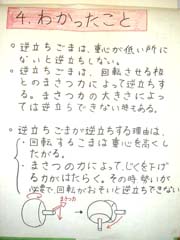 4.わかったこと
○逆立ちごまは、重心が低い所に
ないと逆立ちしない。
○逆立ちごまは、回転させる板
とのまさつ力によって逆立ちす
る。まさつ力の大きさによっ
ては逆立ちできない時もある。
○逆立ちごまが逆立ちする理由は、
・回転するこまは重心を高くし
たがる。
・まさつの力によって、じくを下げ
る力がはたらく。その時勢いが
必要で、回転がおそいと逆立ちできない
まさつ力